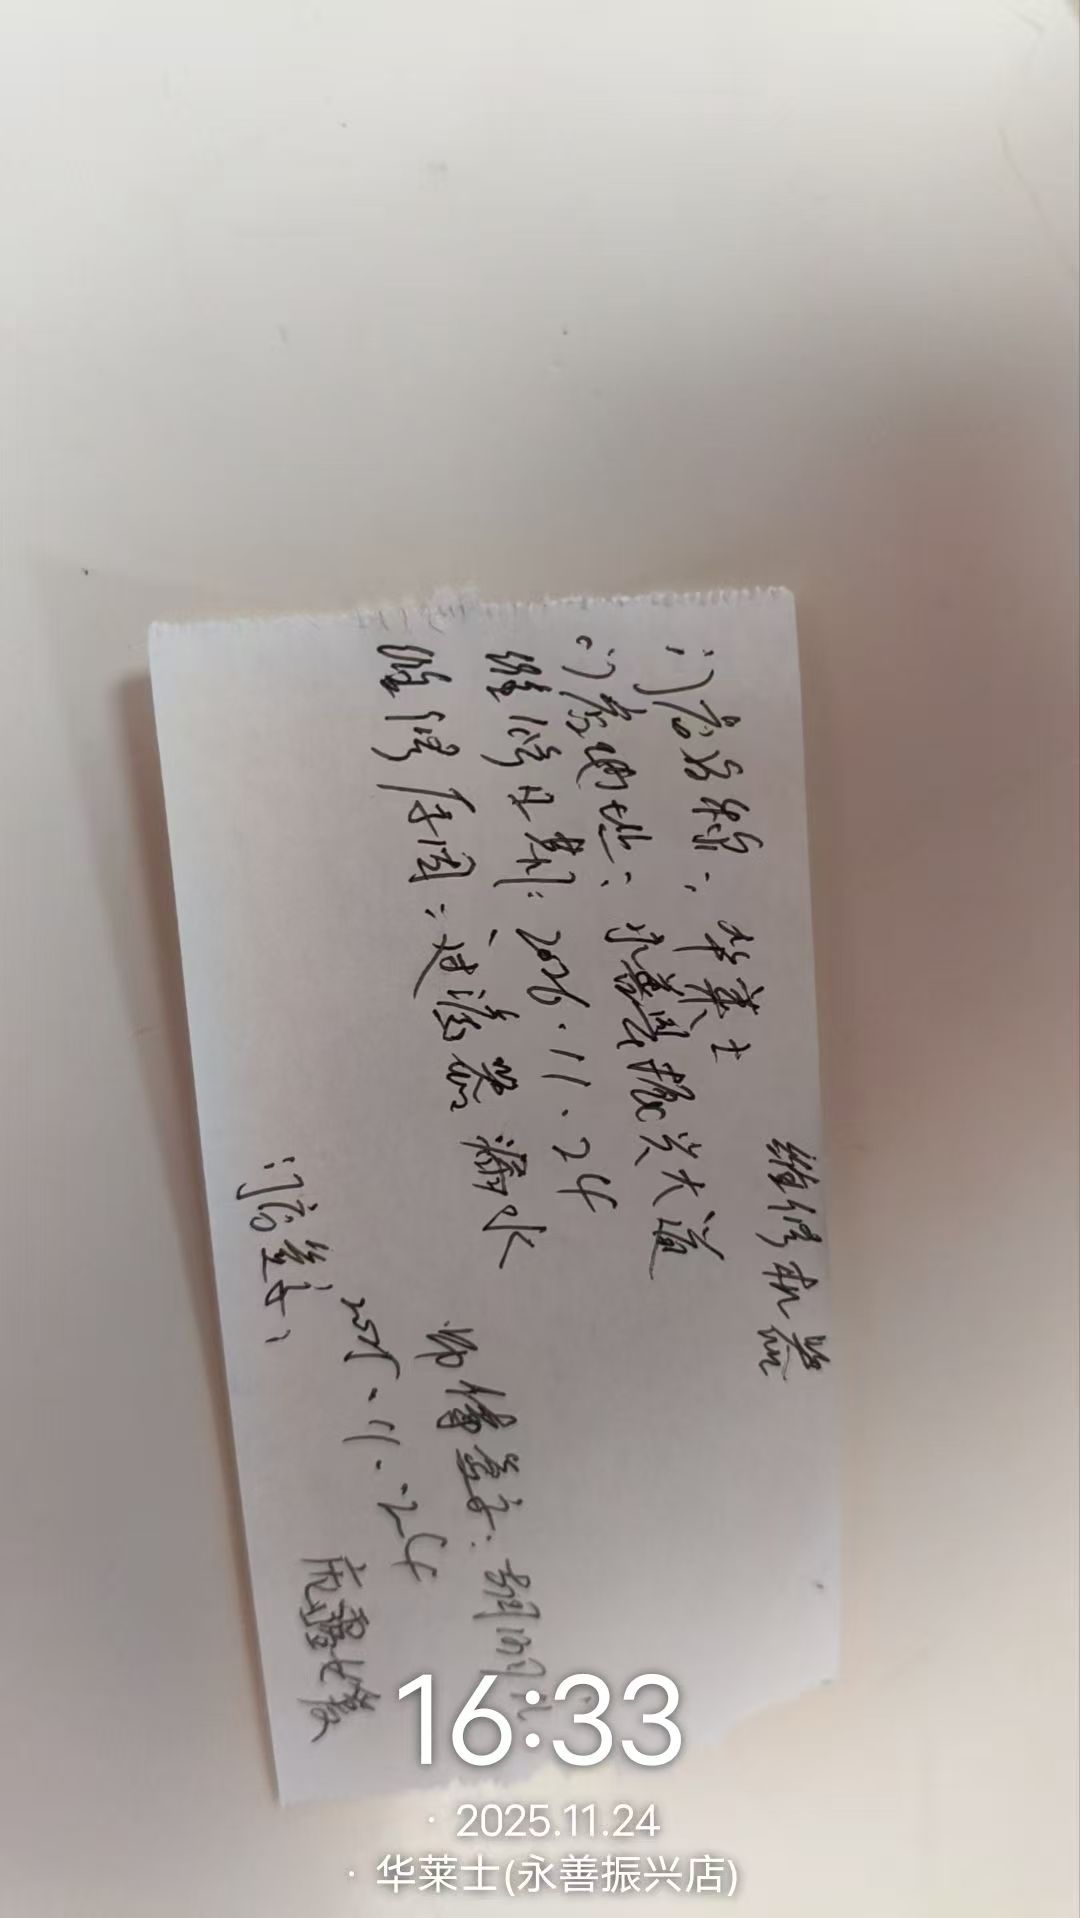 维修机器
门店名称：华莱士
门店地址：永善县振兴大道
维修日期：2026.11.24
维修原因：过滤器漏水
师傅签字：胡
2025.11.24
门店签字：
16:33
· 2025.11.24
· 华莱士(永善振兴店)